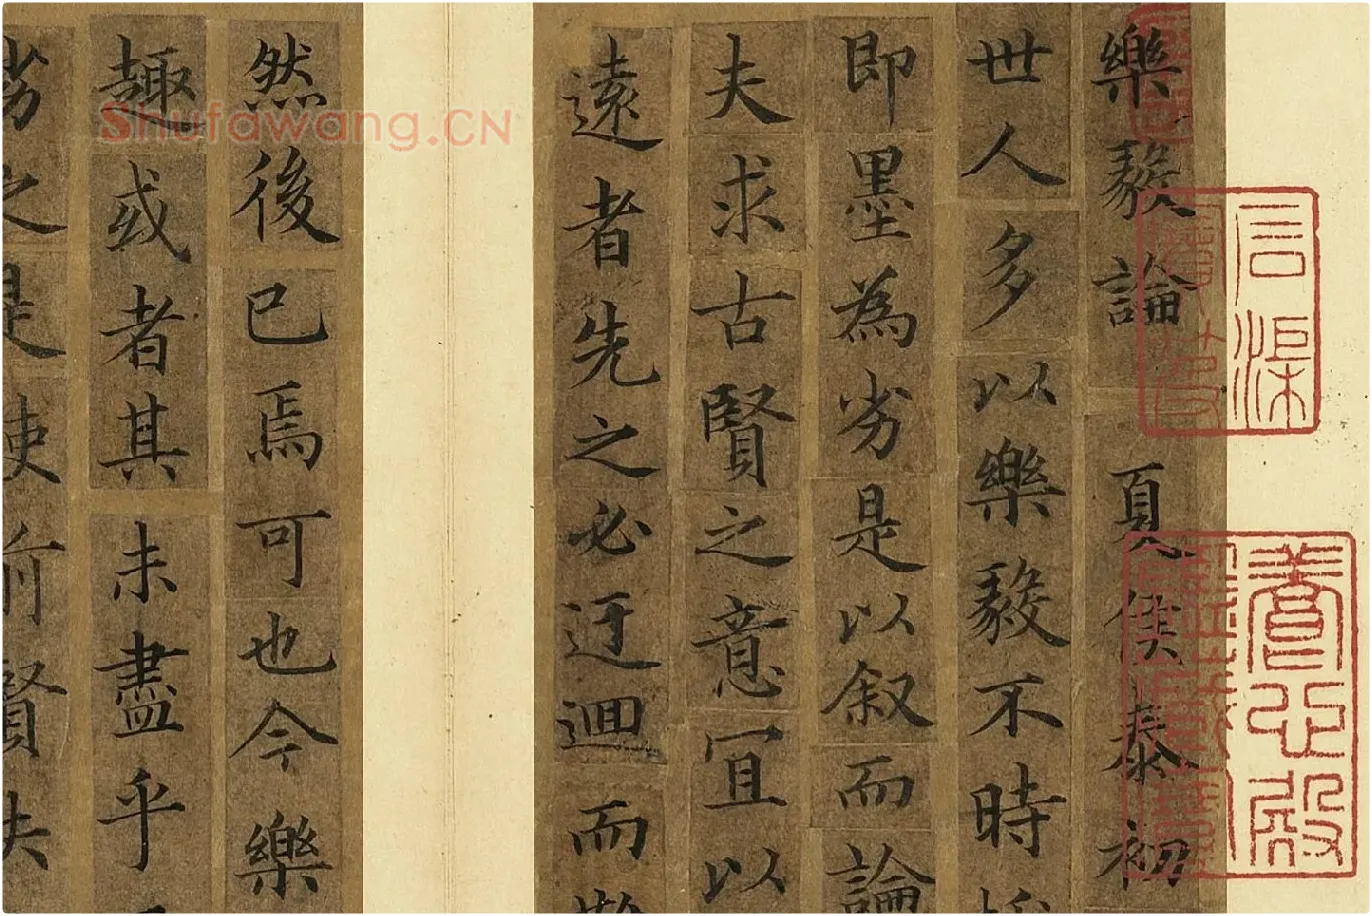 樂毅論 夏侯泰初
世人多以樂毅不時
即墨為劣是以叙而論
夫求古賢之意宜以
遠者先之必迂迴而難
然後已焉可也今樂
趣或者其未盡乎
劣之是使前賢失
Shufawang.CN
養心殿鑑藏寶